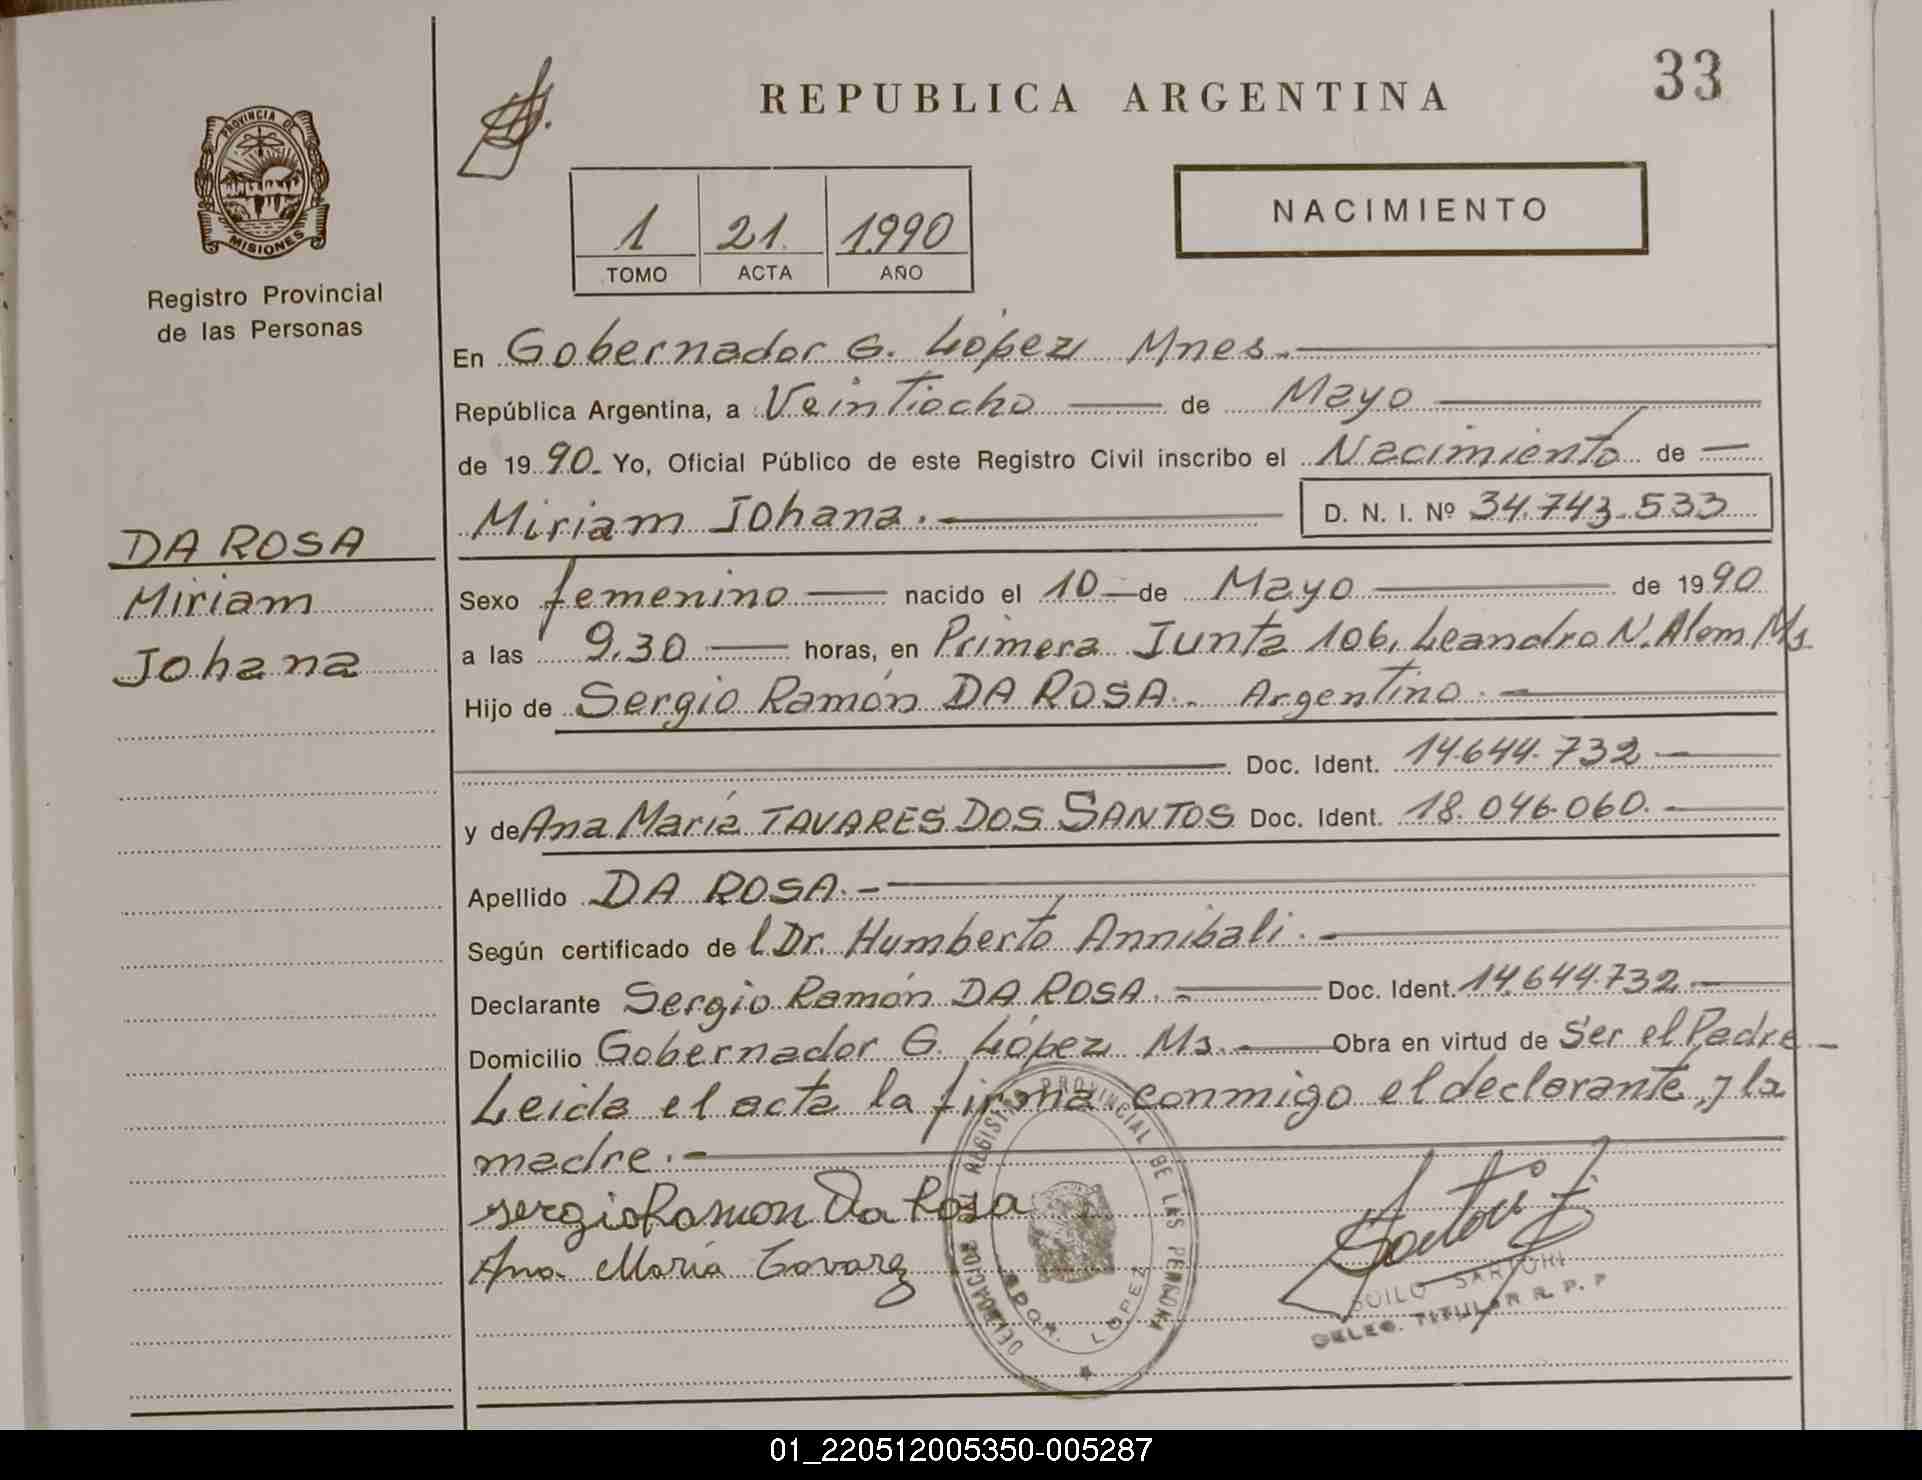 33
REPUBLICA ARGENTINA
PROVINCIA DE
MISIONES
Registro Provincial
de las Personas
1 21. 1990
TOMO ACTA AÑO
NACIMIENTO
En Gobernador G. López Mnes.
República Argentina, a Veintiocho de Mayo
de 1990. Yo, Oficial Público de este Registro Civil inscribo el Nacimiento de
Miriam Johana. D. N. I. Nº 34.743.533
DA ROSA
Miriam
Johana
Sexo femenino nacido el 10 de Mayo de 1990
a las 9,30 horas, en Primera Junta 106, Leandro N. Alem Ms.
Hijo de Sergio Ramón DA ROSA. Argentino.
Doc. Ident. 14.644.732
y de Ana María TAVARES DOS SANTOS Doc. Ident. 18.046.060.
Apellido DA ROSA.
Según certificado de l Dr. Humberto Annibali.
Declarante Sergio Ramón DA ROSA. Doc. Ident. 14.644.732
Domicilio Gobernador G. López Ms. Obra en virtud de Ser el Padre
Leida el acta la firma conmigo el declarante, y la
madre.
sergio Ramon Da Rosa
Ana María Tavarez
REGISTRO PROVINCIAL DE LAS PERSONAS
GDOR. LOPEZ
SOILO SARTORI
DELEG. TITULAR R. P. P
01_220512005350-005287